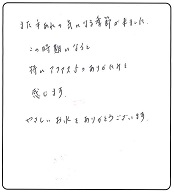 また手あれの気になる季節が来ました。
この時期になると
特にアクアスゴのありがたさを
感じます。
やさしいお水をありがとうございます。